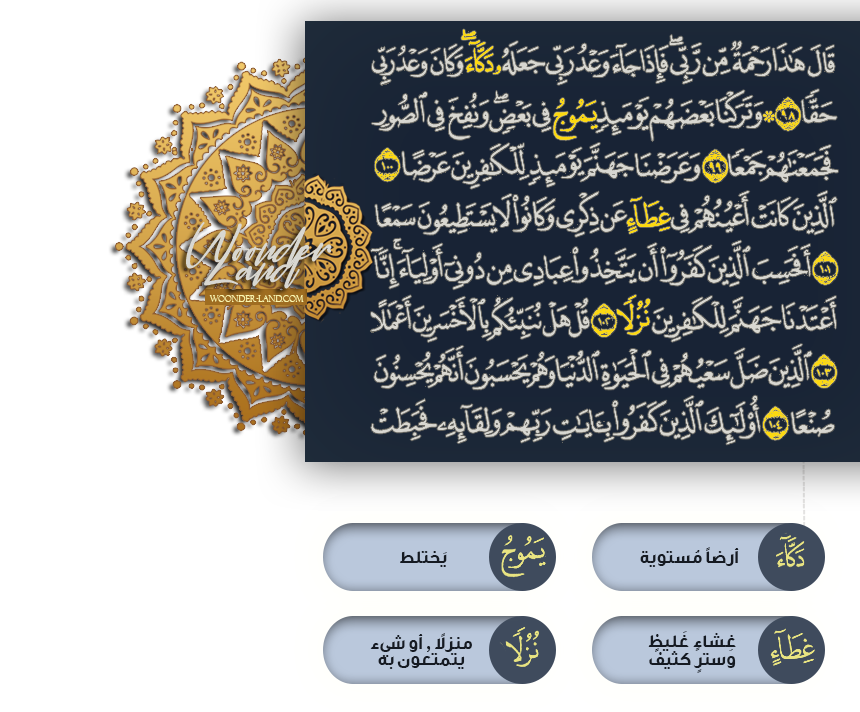 قَالَ هَٰذَا رَحْمَةٌ مِّن رَّبِّي ۖ فَإِذَا جَاءَ وَعْدُ رَبِّي جَعَلَهُ دَكَّاءَ ۖ وَكَانَ وَعْدُ رَبِّي
حَقًّا ٩٨ ۞ وَتَرَكْنَا بَعْضَهُمْ يَوْمَئِذٍ يَمُوجُ فِي بَعْضٍ ۖ وَنُفِخَ فِي الصُّورِ
فَجَمَعْنَاهُمْ جَمْعًا ٩٩ وَعَرَضْنَا جَهَنَّمَ يَوْمَئِذٍ لِّلْكَافِرِينَ عَرْضًا ١٠٠
الَّذِينَ كَانَتْ أَعْيُنُهُمْ فِي غِطَاءٍ عَن ذِكْرِي وَكَانُوا لَا يَسْتَطِيعُونَ سَمْعًا
١٠١ أَفَحَسِبَ الَّذِينَ كَفَرُوا أَن يَتَّخِذُوا عِبَادِي مِن دُونِي أَوْلِيَاءَ ۚ إِنَّا
أَعْتَدْنَا جَهَنَّمَ لِلْكَافِرِينَ نُزُلًا ١٠٢ قُلْ هَلْ نُنَبِّئُكُم بِالْأَخْسَرِينَ أَعْمَالًا
١٠٣ الَّذِينَ ضَلَّ سَعْيُهُمْ فِي الْحَيَاةِ الدُّنْيَا وَهُمْ يَحْسَبُونَ أَنَّهُمْ يُحْسِنُونَ
صُنْعًا ١٠٤ أُولَٰئِكَ الَّذِينَ كَفَرُوا بِآيَاتِ رَبِّهِمْ وَلِقَائِهِ فَحَبِطَتْ
Woonder
Land
WOONDER-LAND.COM
دَكَّاءَ
أرضاً مُستوية
يَمُوجُ
يَختلط
غِطَاءٍ
غِشاءٍ غَليظٍ
وَسترٍ كثيف
نُزُلًا
منزلًا , أو شيء
يتمتعون به